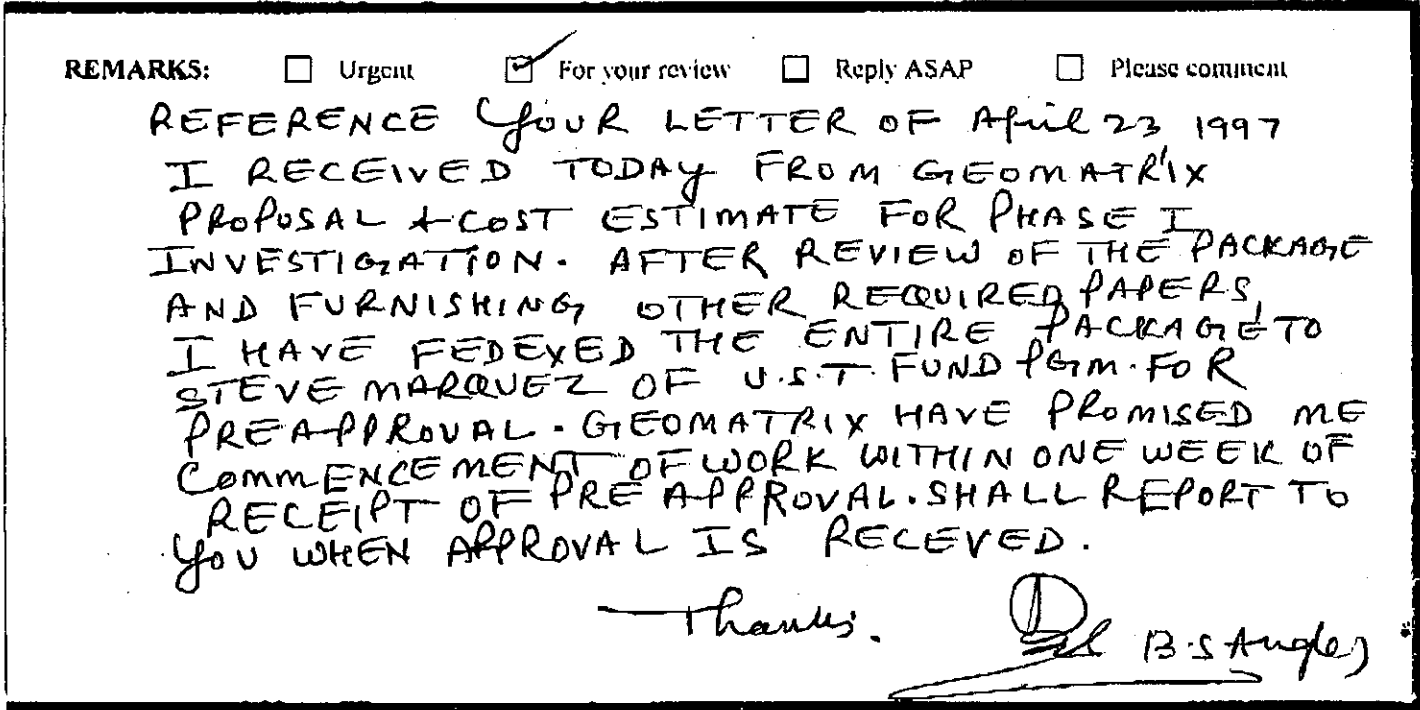 REMARKS: ☐ Urgent ☑ For your review ☐ Reply ASAP ☐ Please comment
REFERENCE YOUR LETTER OF April 23 1997
I RECEIVED TODAY FROM GEOMATRIX
PROPOSAL & COST ESTIMATE FOR PHASE I
INVESTIGATION. AFTER REVIEW OF THE PACKAGE
AND FURNISHING OTHER REQUIRED PAPERS,
I HAVE FEDEXED THE ENTIRE PACKAGE TO
STEVE MARQUEZ OF U.S.T. FUND PGM. FOR
PREAPPROVAL. GEOMATRIX HAVE PROMISED ME
COMMENCEMENT OF WORK WITHIN ONE WEEK OF
RECEIPT OF PRE APPROVAL. SHALL REPORT TO
YOU WHEN APPROVAL IS RECEVED.
Thanks.
B.S